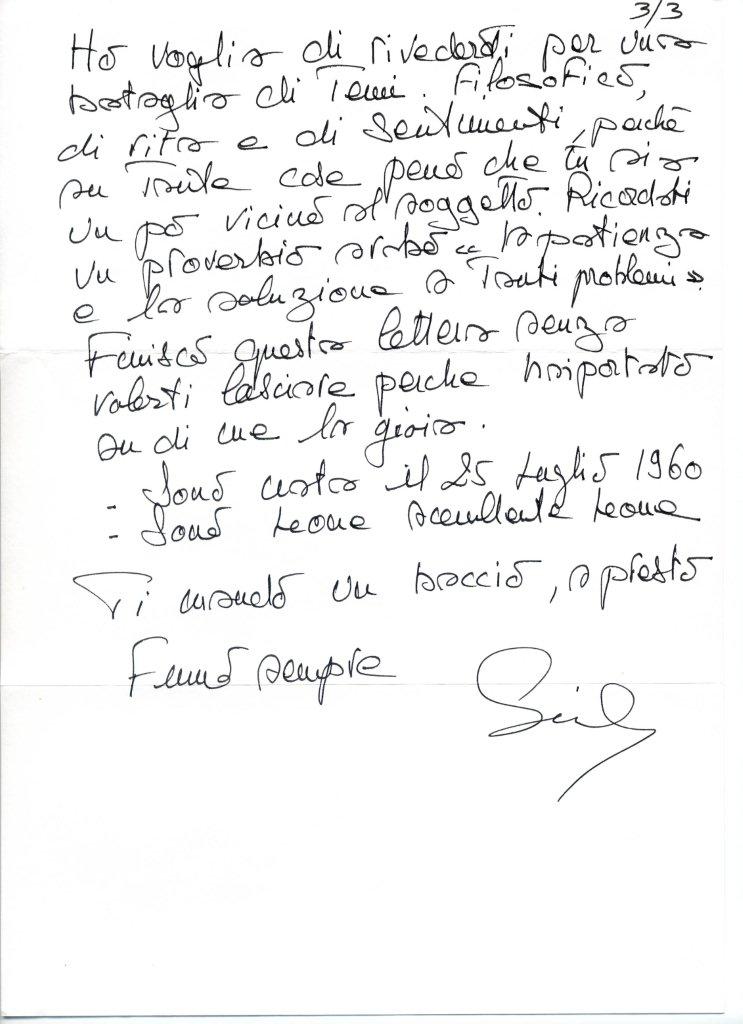 3/3
Ho voglia di rivederti per una
battaglia di Temi. Filosofico,
di vita e di Sentimenti, perchè
su Tante cose penso che tu sia
un pò vicino al soggetto. Ricordati
un proverbio arabo « la patienza
e la soluzione a Tanti problemi ».
Finisco questa lettera senza
volerti lasciare perche hai portato
su di me la gioia.
- Sono nata il 25 Luglio 1960
- Sono Leone ascendente Leone
Ti mando un baccio, a presto
sempre